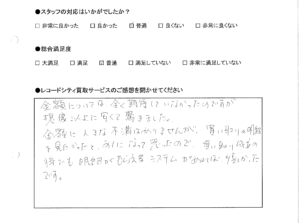 ●スタッフの対応はいかがでしたか？
□ 非常に良かった □ 良かった ☑ 普通 □ 良くない □ 非常に良くない
●総合満足度
□ 大満足 □ 満足 ☑ 普通 □ 満足していない □ 非常に満足していない
●レコードシティ買取サービスのご感想を聞かせてください
金額については全く期待していなかったのですが
想像以上に安くて驚きました。
金額に大きな不満はありませんが、買い取りの明細
を見たかったと、あとになって思ったので、買い取り時
でも明細がもらえるシステムがあれば、良かった
です。